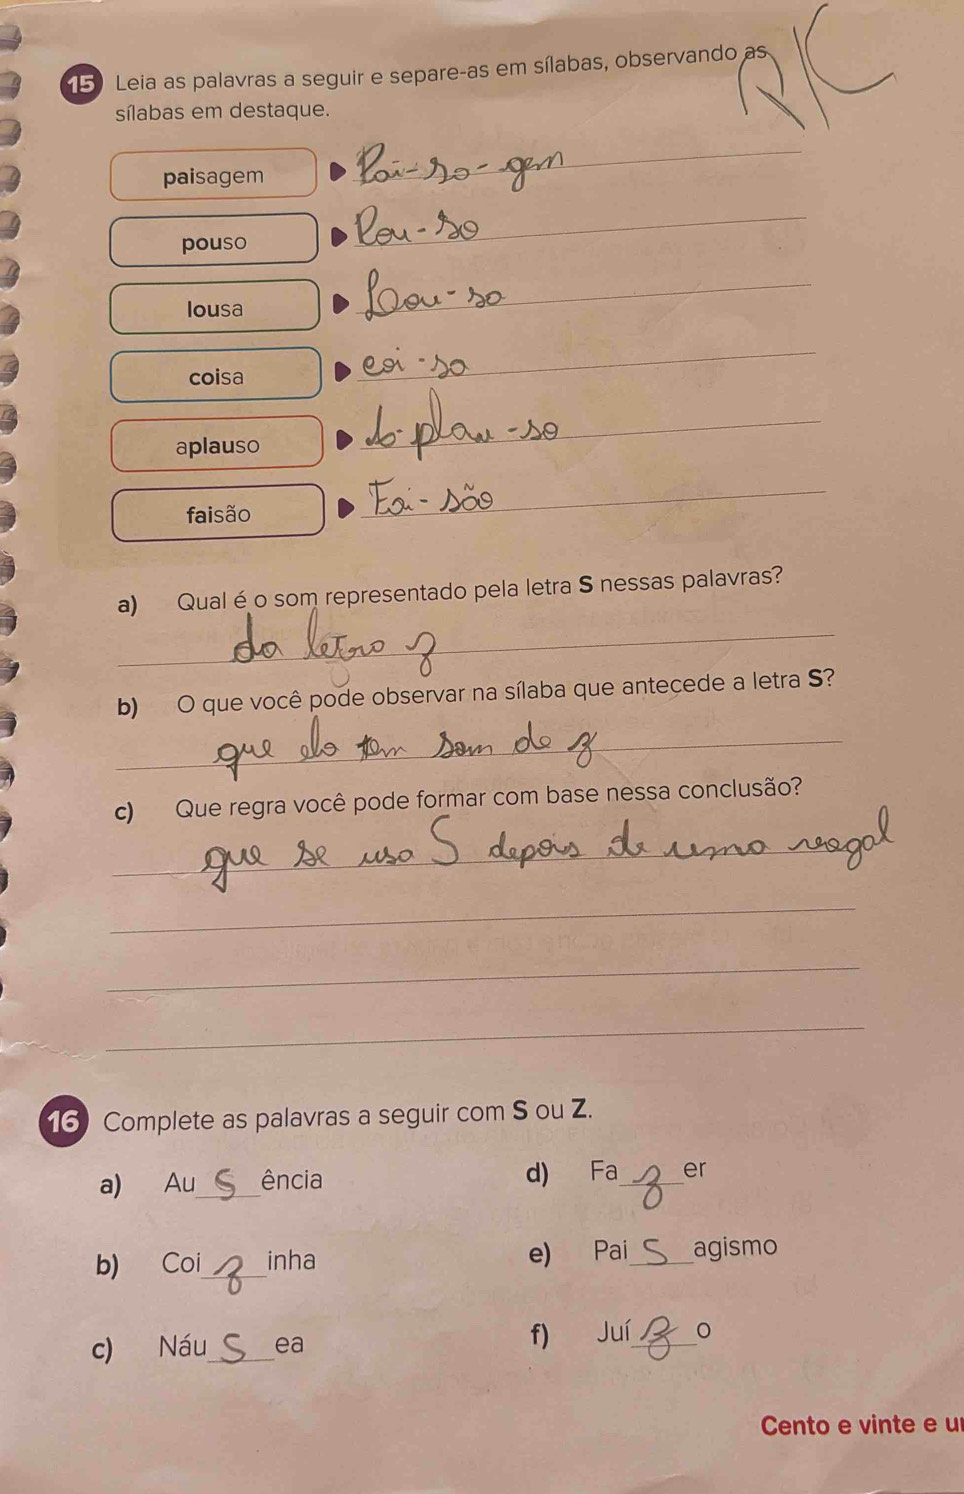 15 Leia as palavras a seguir e separe-as em sílabas, observando as
sílabas em destaque.
paisagem Pai-sa-gem
pouso Pou-so
lousa Lou-sa
coisa coi-sa
aplauso A-plau-so
faisão Fai-são
a) Qual é o som representado pela letra S nessas palavras?
da letra z
b) O que você pode observar na sílaba que antecede a letra S?
que ela tem som de z
c) Que regra você pode formar com base nessa conclusão?
que se usa S depois de uma vogal
16 Complete as palavras a seguir com S ou Z.
a) Au S ência
d) Fa z er
b) Coi z inha
e) Pai S agismo
c) Náu S ea
f) Juí z o
Cento e vinte e u